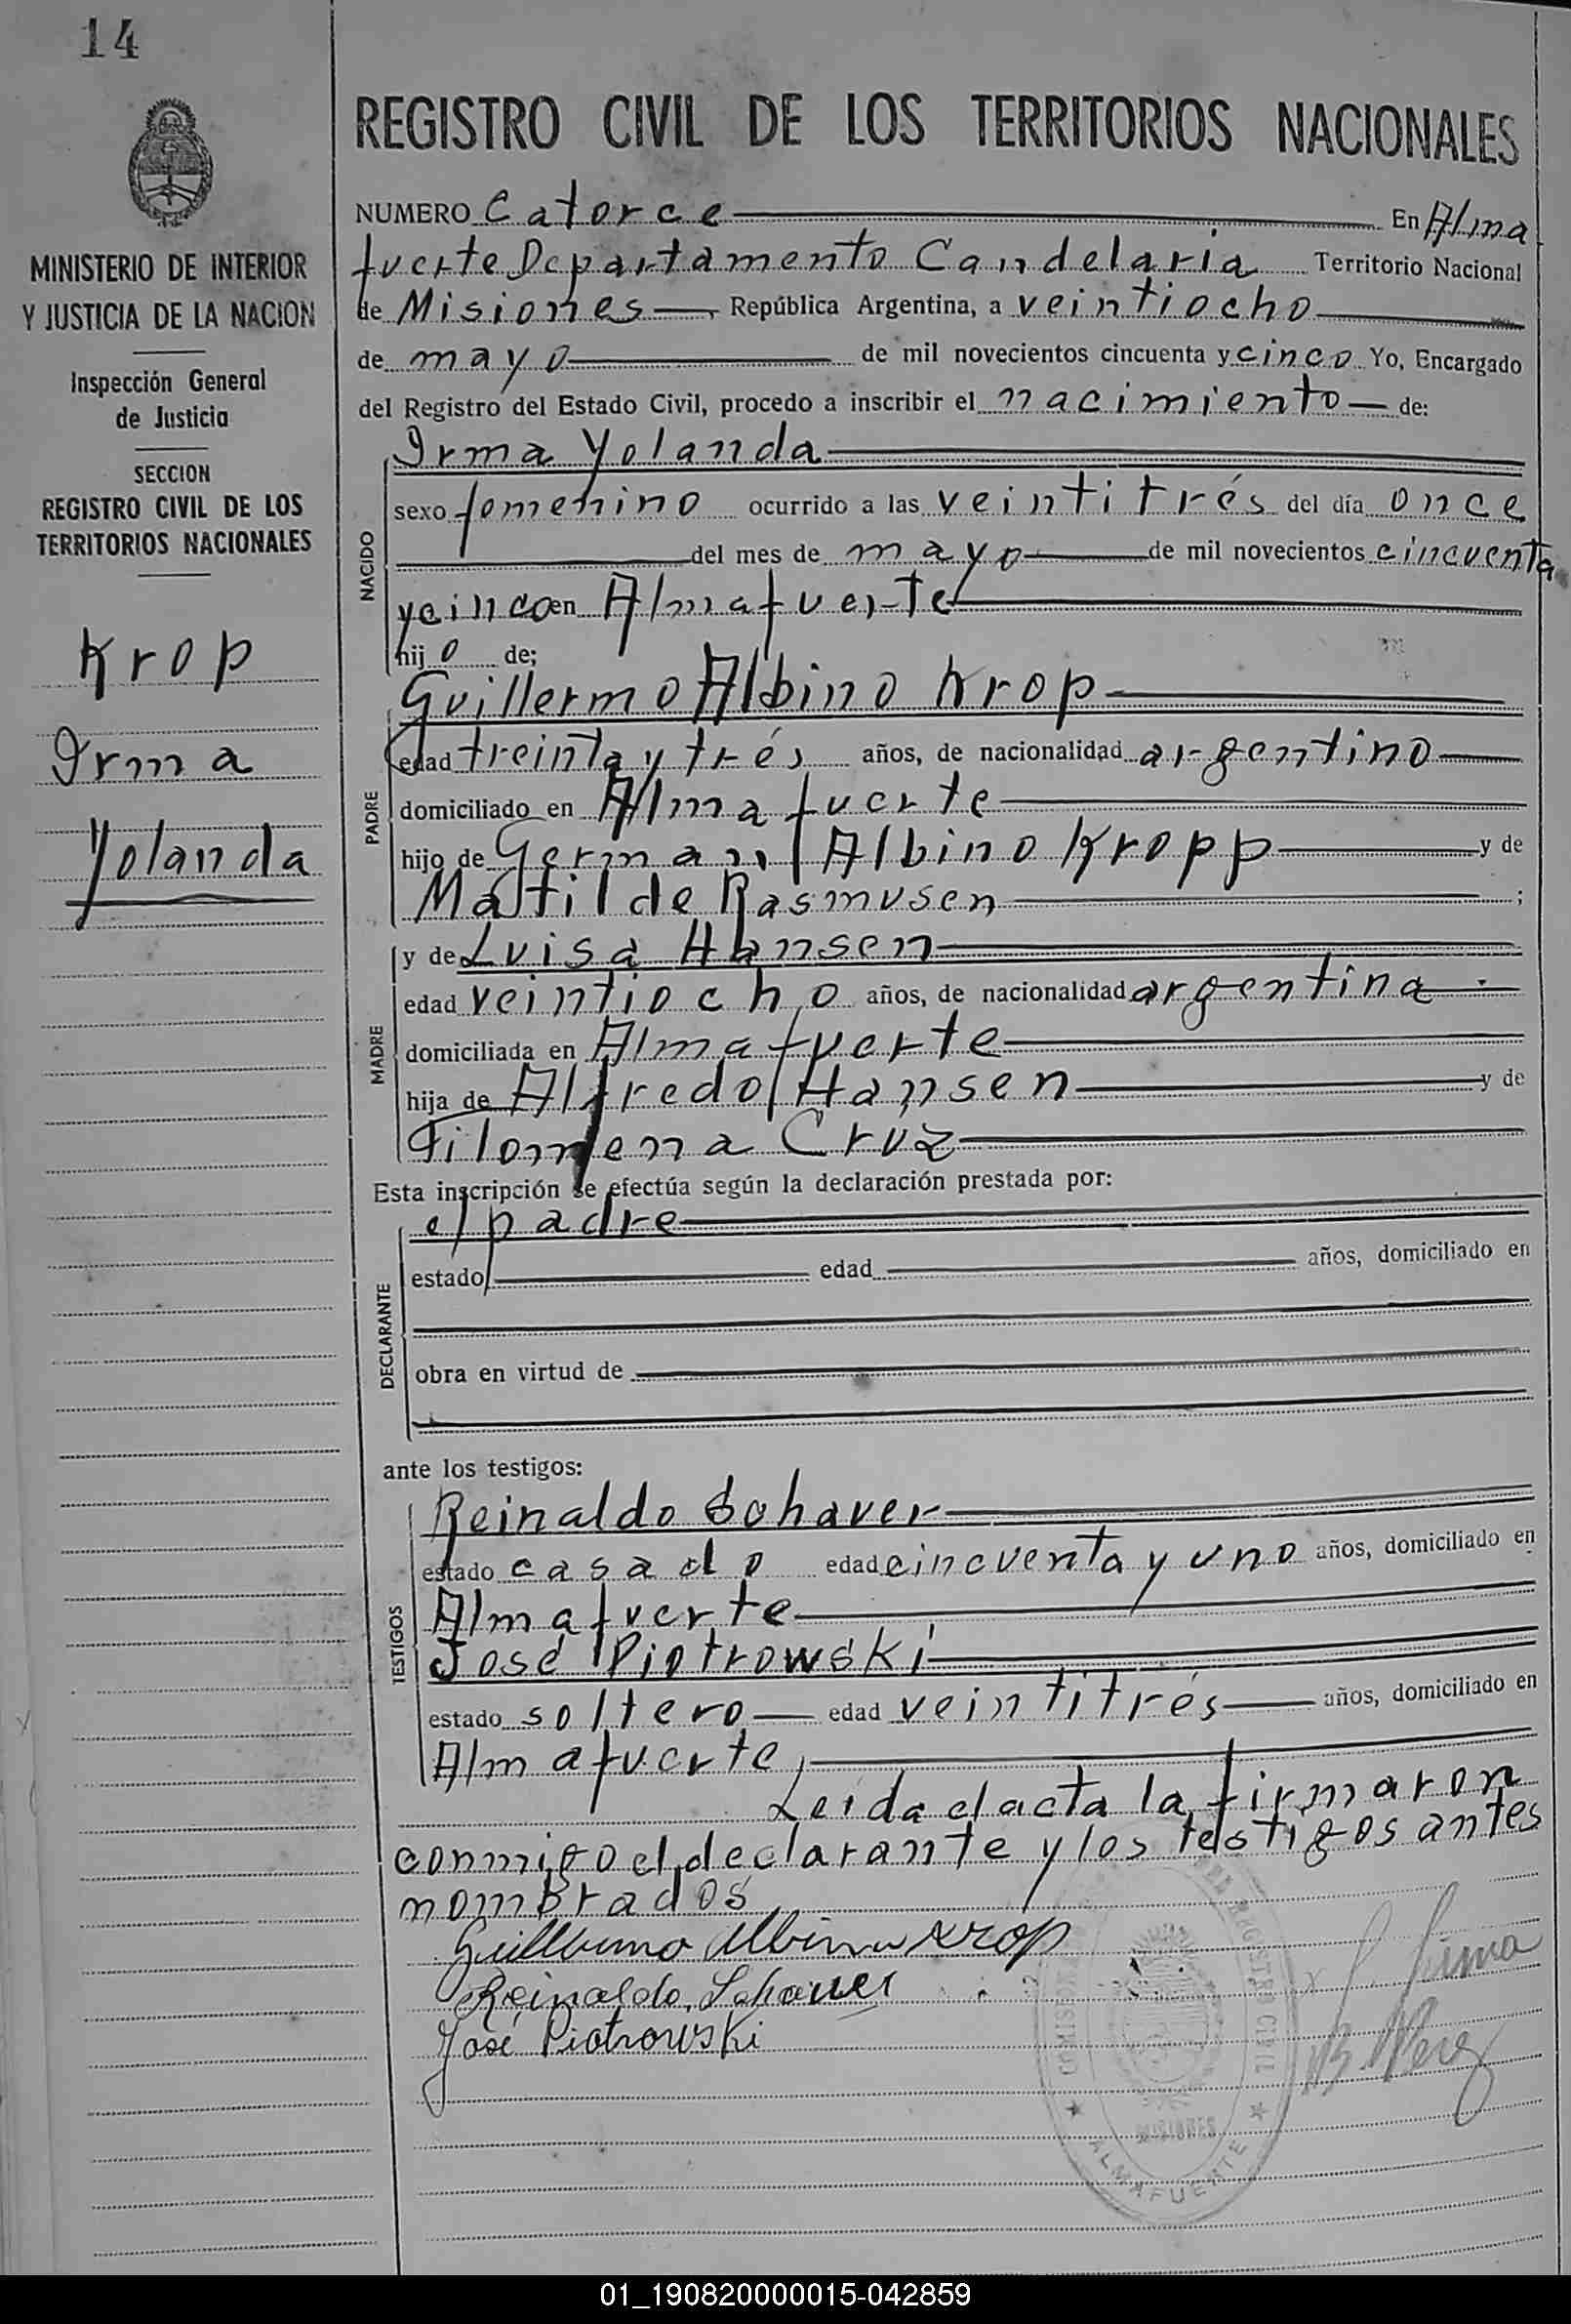 14
REGISTRO CIVIL DE LOS TERRITORIOS NACIONALES
MINISTERIO DE INTERIOR
Y JUSTICIA DE LA NACION
Inspección General
de Justicia
SECCION
REGISTRO CIVIL DE LOS
TERRITORIOS NACIONALES
Krop
Irma
Yolanda
NUMERO Catorce En Alma
fuerte Departamento Candelaria Territorio Nacional
de Misiones República Argentina, a veintiocho
de mayo de mil novecientos cincuenta y cinco Yo, Encargado
del Registro del Estado Civil, procedo a inscribir el nacimiento de:
NACIDO
Irma Yolanda
sexo femenino ocurrido a las veintitrés del día once
del mes de mayo de mil novecientos cincuenta
y cinco en Almafuerte
hijo de;
PADRE
Guillermo Albino Krop
edad treinta y trés años, de nacionalidad argentino
domiciliado en Almafuerte
hijo de German Albino Kropp y de
Matilde Rasmusen ;
MADRE
y de Luisa Hansen
edad veintiocho años, de nacionalidad argentina
domiciliada en Almafuerte
hija de Alfredo Hansen y de
Filomena Cruz
Esta inscripción se efectúa según la declaración prestada por:
DECLARANTE
el padre
estado edad años, domiciliado en
obra en virtud de
ante los testigos:
TESTIGOS
Reinaldo Schaver
estado casado edad cincuenta y uno años, domiciliado en
Almafuerte
José Piotrowski
estado soltero edad veintitrés años, domiciliado en
Almafuerte
Leida el acta la firmaron
conmigo el declarante y los testigos antes
nombrados
Guillermo Albino Krop
Reinaldo Schaver
José Piotrowski
REGISTRO CIVIL
MISIONES
ALMAFUERTE
01_190820000015-042859